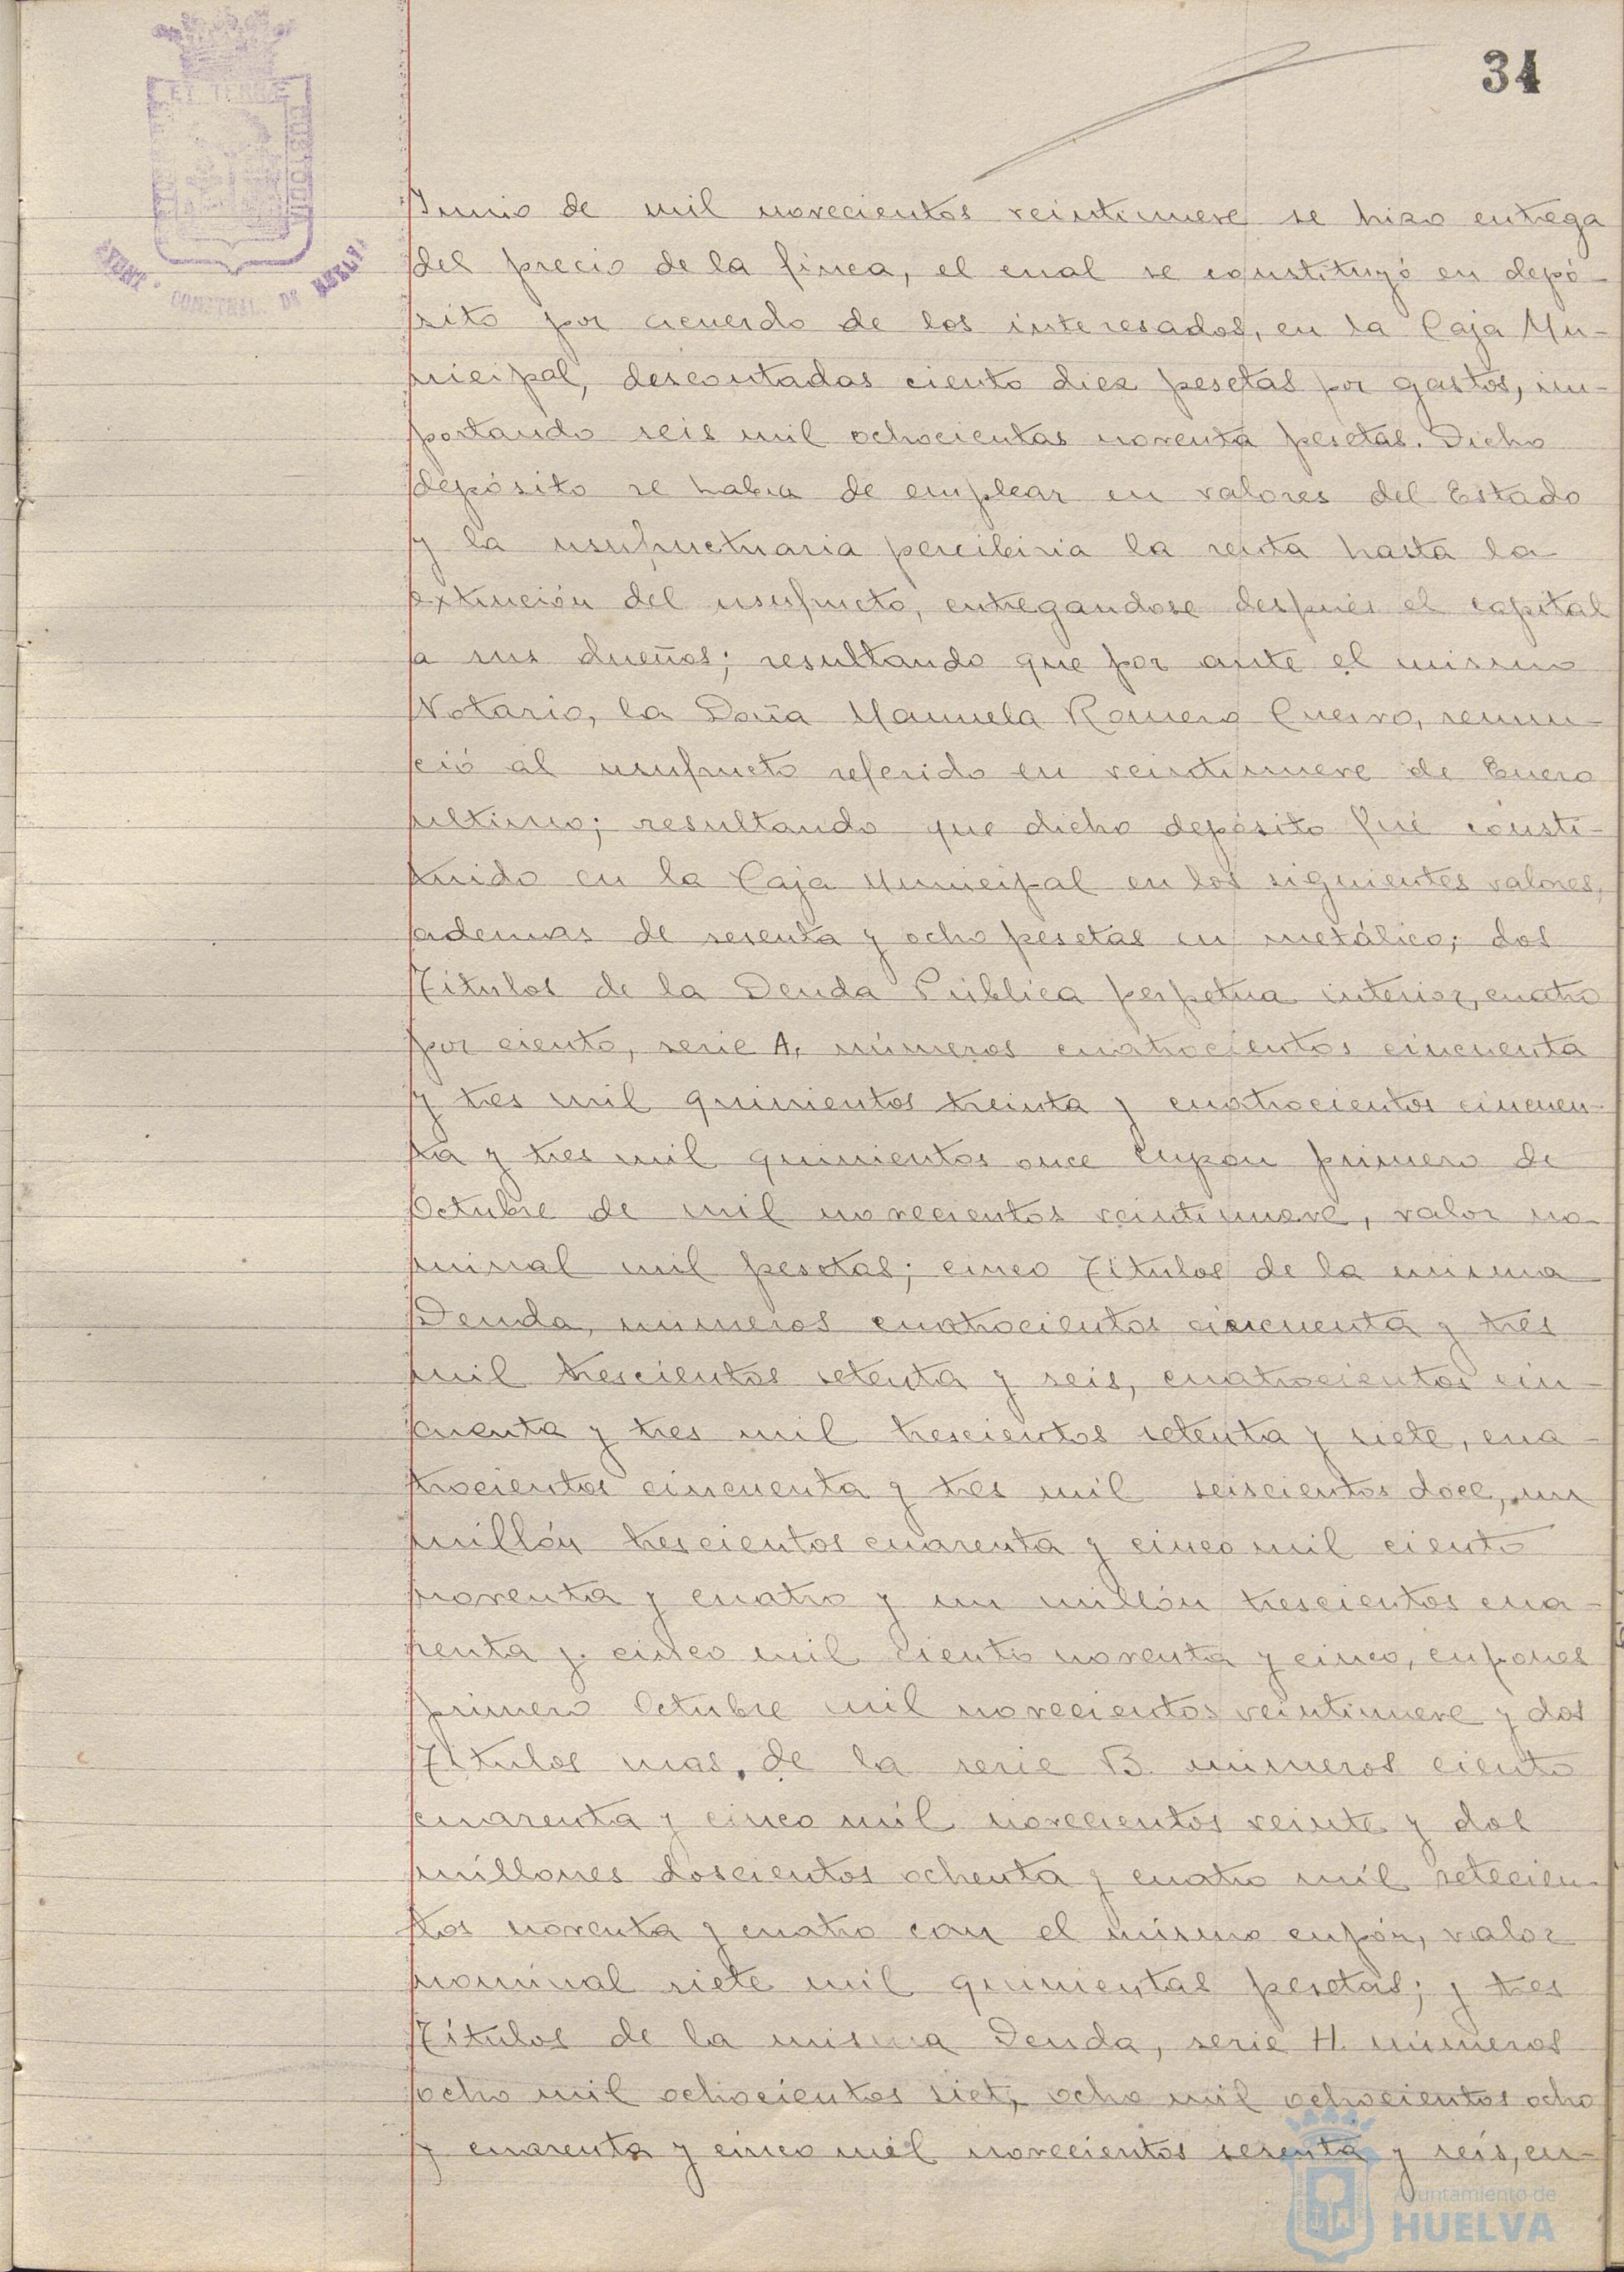 34
ET TERRÆ
CUSTODIA
AYUNT. CONSTNAL. DE HUELVA
Junio de mil novecientos veintinueve se hizo entrega
del precio de la finca, el cual se constituyó en depó-
sito por acuerdo de los interesados, en la Caja Mu-
nicipal, descontadas ciento diez pesetas por gastos, im-
portando seis mil ochocientas noventa pesetas. Dicho
depósito se habia de emplear en valores del Estado
y la usufructuaria percibiria la renta hasta la
extinción del usufructo, entregandose después el capital
a sus dueños; resultando que por ante el mismo
Notario, la Doña Manuela Romero Cuervo, renun-
ció al usufructo referido en veintinueve de Enero
ultimo; resultando que dicho depósito fué consti-
tuido en la Caja Municipal en los siguientes valores,
ademas de sesenta y ocho pesetas en metálico; dos
Titulos de la Deuda Pública perpetua interior, cuatro
por ciento, serie A, números cuatrocientos cincuenta
y tres mil quinientos treinta y cuatrocientos cincuen-
ta y tres mil quinientos once cupon primero de
Octubre de mil novecientos veintinueve, valor no-
minal mil pesetas; cinco Titulos de la misma
Deuda, números cuatrocientos cincuenta y tres
mil trescientos setenta y seis, cuatrocientos cin-
cuenta y tres mil trescientos setenta y siete, cua-
trocientos cincuenta y tres mil seiscientos doce, un
millón trescientos cuarenta y cinco mil ciento
noventa y cuatro y un millón trescientos cua-
renta y cinco mil ciento noventa y cinco, cupones
primero Octubre mil novecientos veintinueve y dos
Titulos mas, de la serie B. números ciento
cuarenta y cinco mil novecientos veinte y dos
millones doscientos ochenta y cuatro mil setecien-
tos noventa y cuatro con el mismo cupón, valor
nominal siete mil quinientas pesetas; y tres
Títulos de la misma Deuda, serie H. números
ocho mil ochocientos siete, ocho mil ochocientos ocho
y cuarenta y cinco mil novecientos sesenta y seis, cu-
Ayuntamiento de
HUELVA